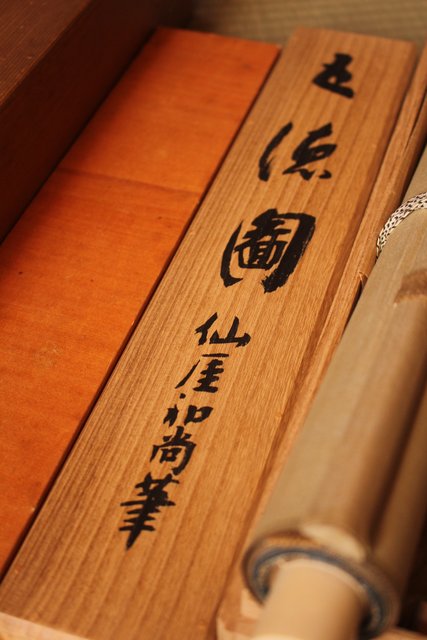 五徳圖 仙厓和尚筆